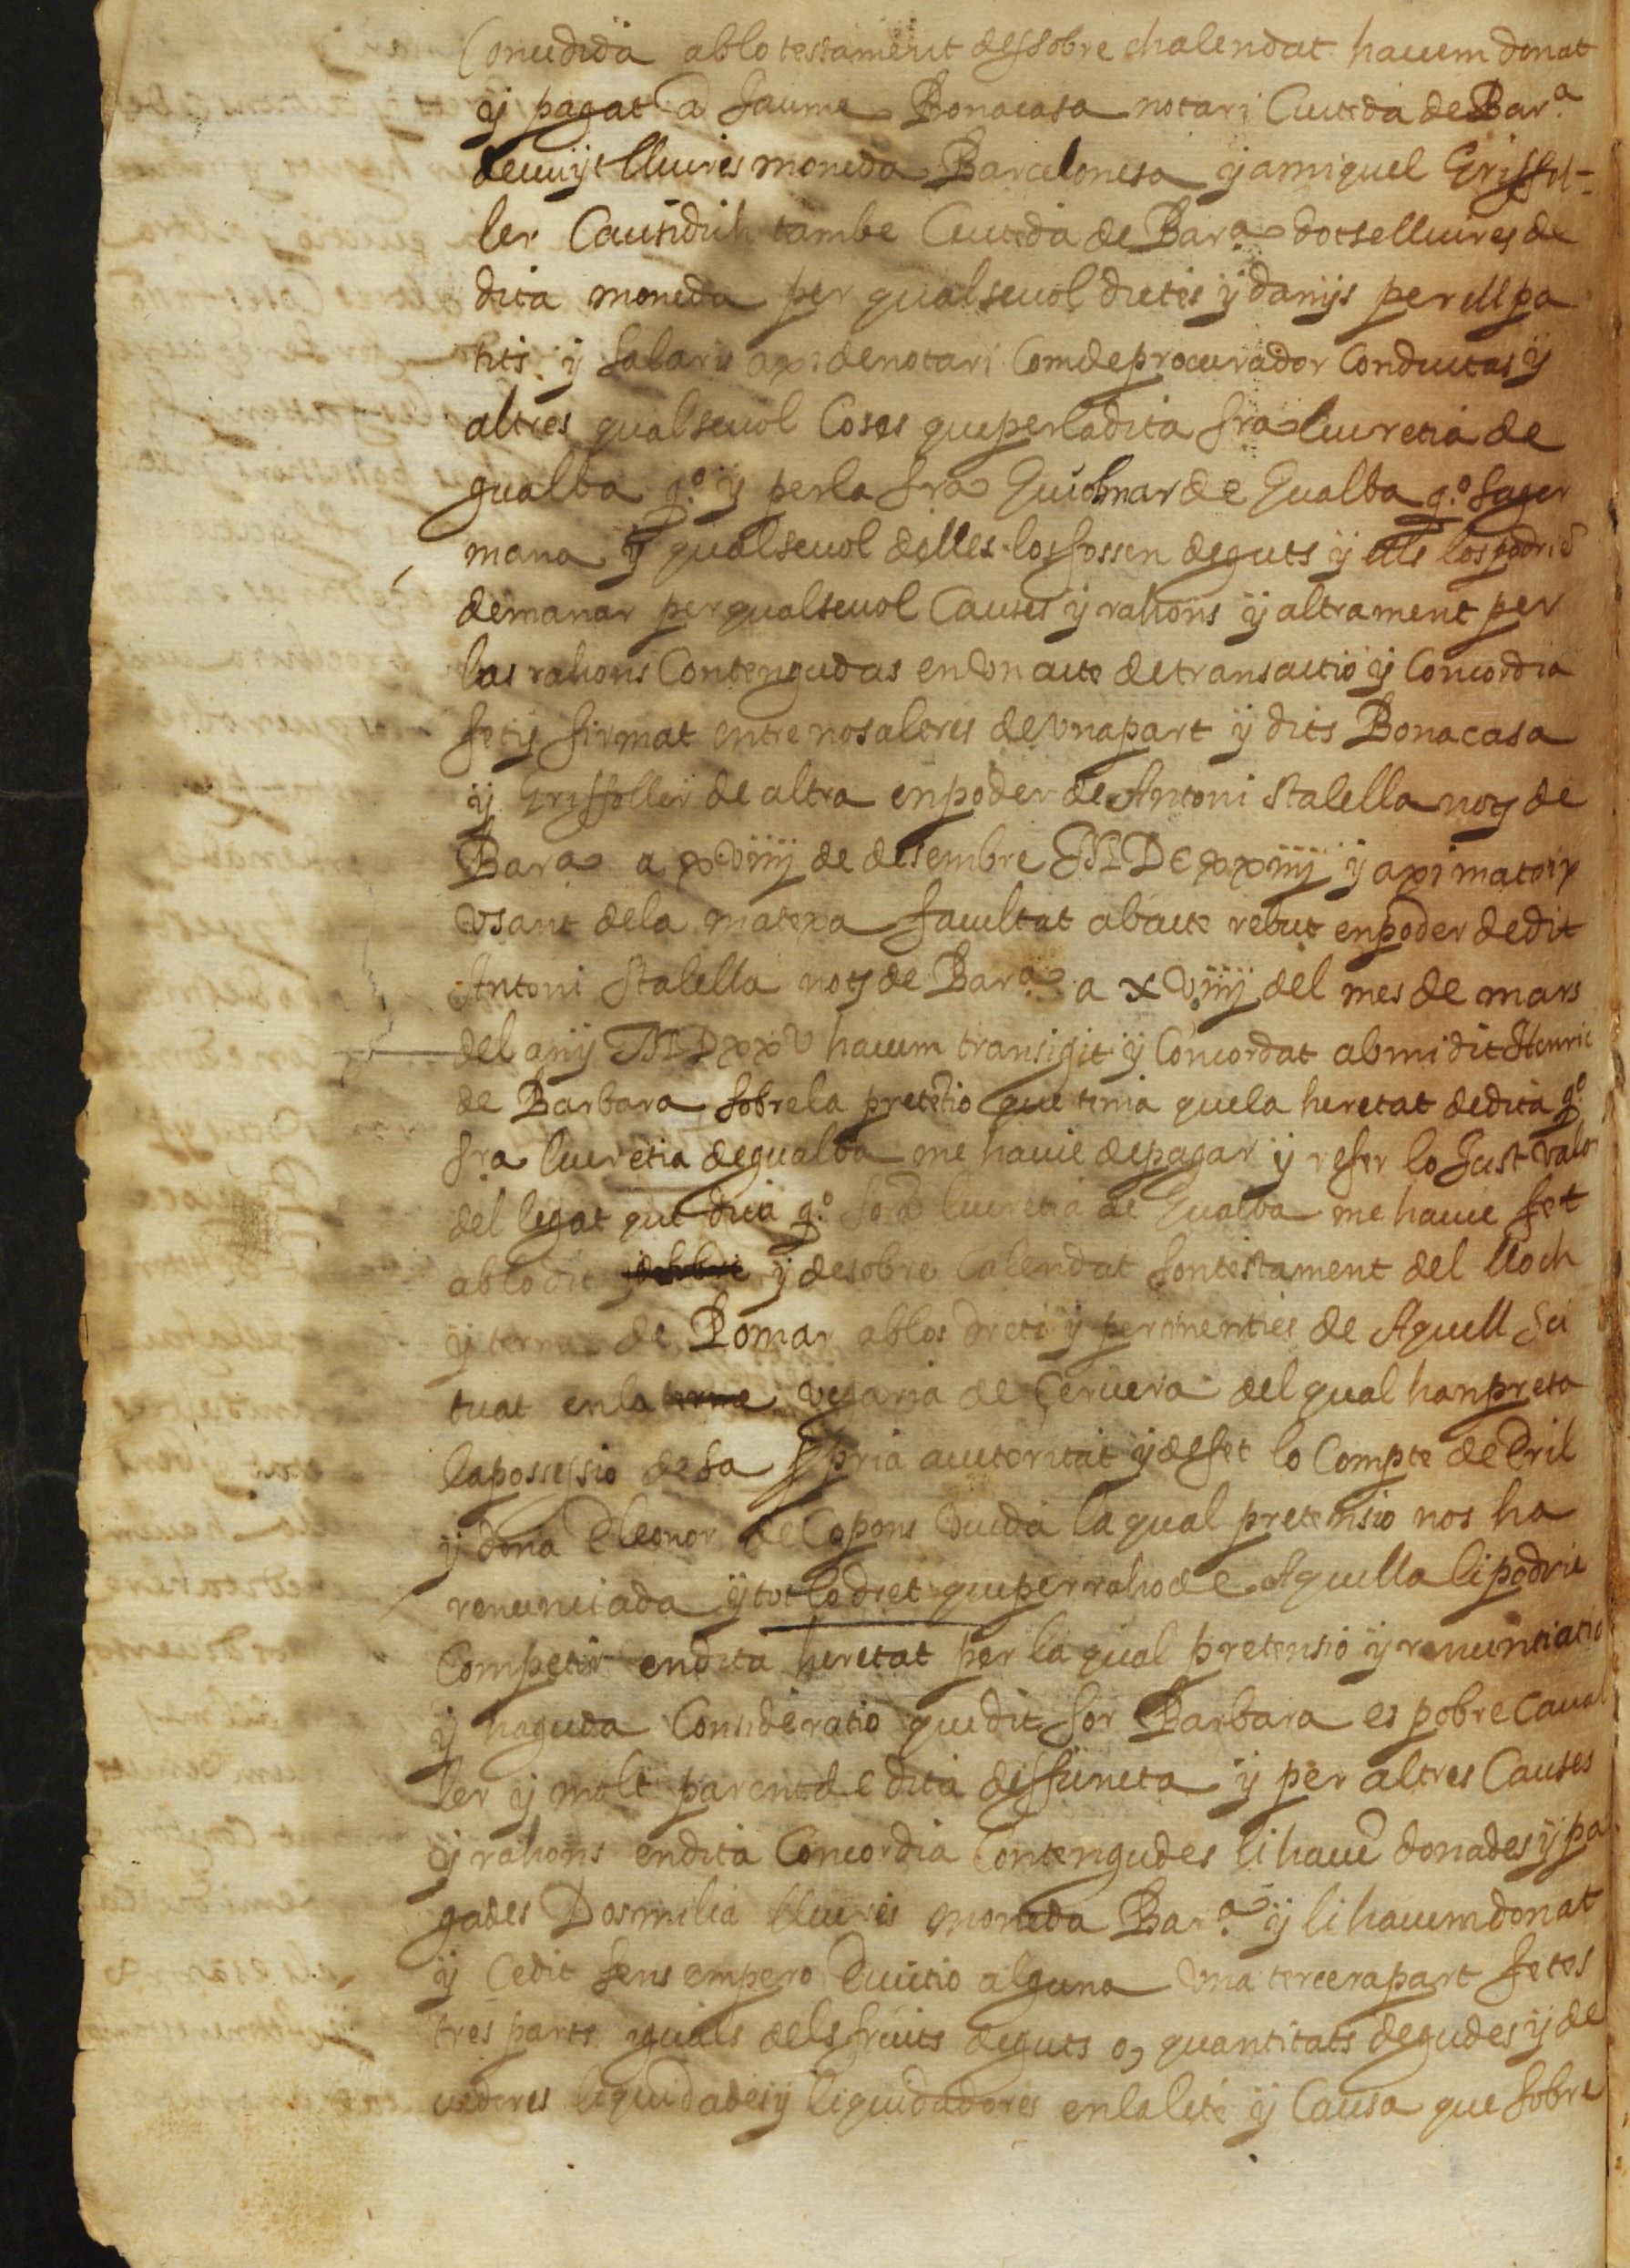 Concedida ab lo testament dessobre chalendat havem donat
y pagat a Jaume Bonacasa notari Ciutedà de Bar.ª
devuyt lliures moneda Barcelonesa y a miquel Griffol-
ler Causidich tambe Ciutedà de Barª dotse lliures de
dita moneda per qualsevol dietes y danys per ell pa
tits y salaris axi de notari com de procurador conductas y
altres qualsevol coses que per la dita sra lucretia de
gualba q.º y per la sra Guiomar de Gualba q.º sa ger
mana y qualsevol delles los fossen deguts y ells los podrie
demanar per qualsevol causes y rahons y altrament per
las rahons contengudas en un acte de transactio y concordia
fet y firmat entre nosaltres de una part y dits Bonacasa
y Griffoller de altra en poder de Antoni Stalella noty de
Barª a xviiij de desembre MDCxxiiij y axi mateix
usant de la matexa facultat ab acte rebut en poder de dit
Antoni Stalella noty de Barª a xviiij del mes de mars
del any MDCxxv havem transigit y concordat ab mi dit Henric
de Barbara sobre la pretetio que tenia que la heretat de dita q.º
sra lucretia de gualba me havie de pagar y refer lo Just valor
del legat que dita q.º sora lucretia de Gualba me havie fet
ab lo dit y desobre calendat son testament del lloch
y terme de Pomar ab los drets y pertinenties de Aquell si
tuat en la terme vegaria de Cervera del qual han presa
la possessio de sa ppria auctoritat y de fet lo Compte de Eril
y dona Eleonor de Copons viuda la qual pretensio nos ha
renunciada y tot lo dret que per raho de Aquella li podrie
competir en dita heretat per la qual pretensio y renuntiatio
y haguda consideratio que dit sor Barbara es pobre caval
ler y molt parent de dita deffuncta y per altres causes
y rahons en dita concordia contengudes li havē donades y pa
gades Dosmilia lliures moneda Bar.ª y li havem donat
y cedit sens empero evictio alguna una tercera part fetes
tres parts yguals dels fruits deguts o, quantitats degudes y de
vedores liquidades y liquidadores en la lite y causa que sobre